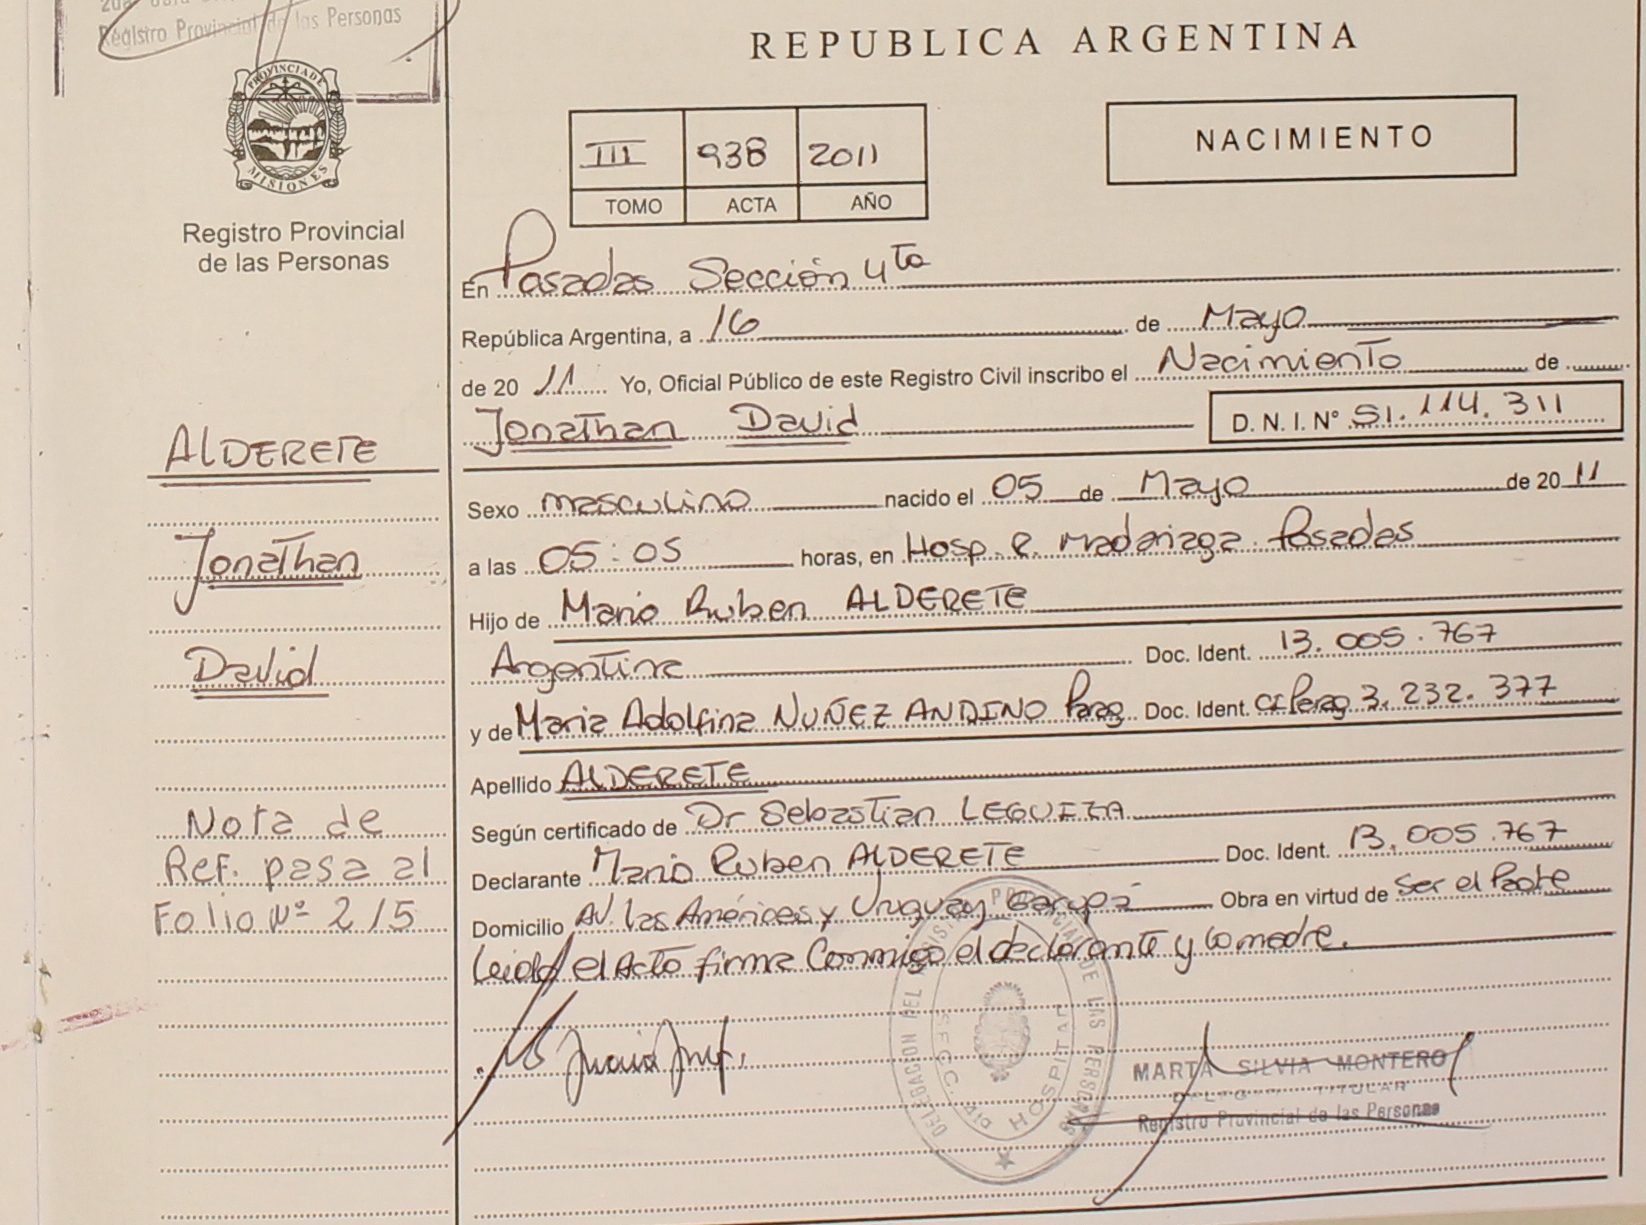 Registro Provincial de las Personas
PROVINCIA DE
MISIONES
Registro Provincial
de las Personas
ALDERETE
Jonathan
David
Nota de
Ref. pasa al
Folio Nº 215
REPUBLICA ARGENTINA
III 938 2011
TOMO ACTA AÑO
NACIMIENTO
En Posadas Sección 4ta
República Argentina, a 16 de Mayo
de 20 11 Yo, Oficial Público de este Registro Civil inscribo el Nacimiento de
Jonathan David D. N. I. Nº 51.114.311
Sexo masculino nacido el 05 de Mayo de 20 11
a las 05:05 horas, en Hosp. R. Madariaga Posadas
Hijo de Mario Ruben ALDERETE
Argentina Doc. Ident. 13.005.767
y de Maria Adolfina NUÑEZ ANDINO Parag Doc. Ident. CI Parag 3.232.377
Apellido ALDERETE
Según certificado de Dr Sebastian LEGUIZA
Declarante Mario Ruben ALDERETE Doc. Ident. 13.005.767
Domicilio AV. las Américas y Uruguay Garupá Obra en virtud de ser el Padre
Leida el Acta firma Conmigo el declarante y la madre.
DELEGACION DEL REGISTRO PROVINCIAL DE LAS PERSONAS
HOSPITAL
MARTA SILVIA MONTERO
TITULAR
Registro Provincial de las Personas